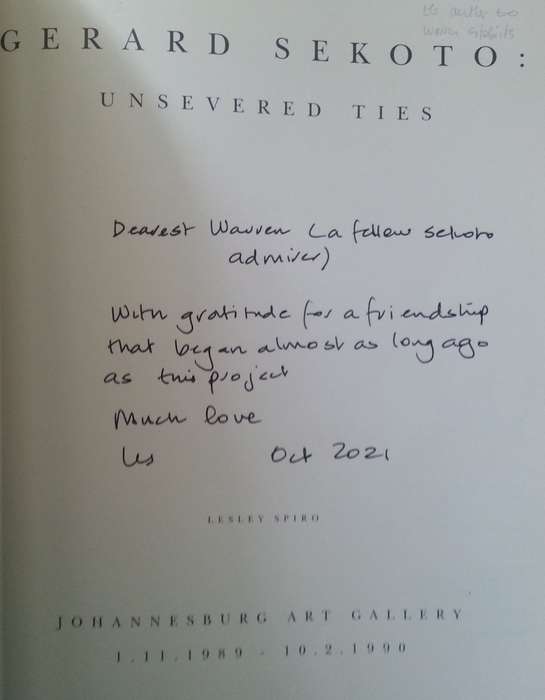 GERARD SEKOTO:
UNSEVERED TIES
Dearest Warren (a fellow sekoto
admirer)
With gratitude for a friendship
that began almost as long ago
as this project
Much love
Les Oct 2021
LESLEY SPIRO
JOHANNESBURG ART GALLERY
1.11.1989 - 10.2.1990